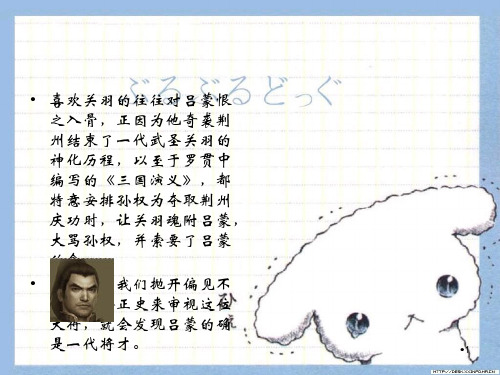 ぶるぶるどっぐ
• 喜欢关羽的往往对吕蒙恨
之入骨，正因为他奇袭荆
州结束了一代武圣关羽的
神化历程，以至于罗贯中
编写的《三国演义》，都
特意安排孙权为夺取荆州
庆功时，让关羽魂附吕蒙，
大骂孙权，并索要了吕蒙
• 我们抛开偏见不
正史来审视这位
大将，就会发现吕蒙的确
是一代将才。